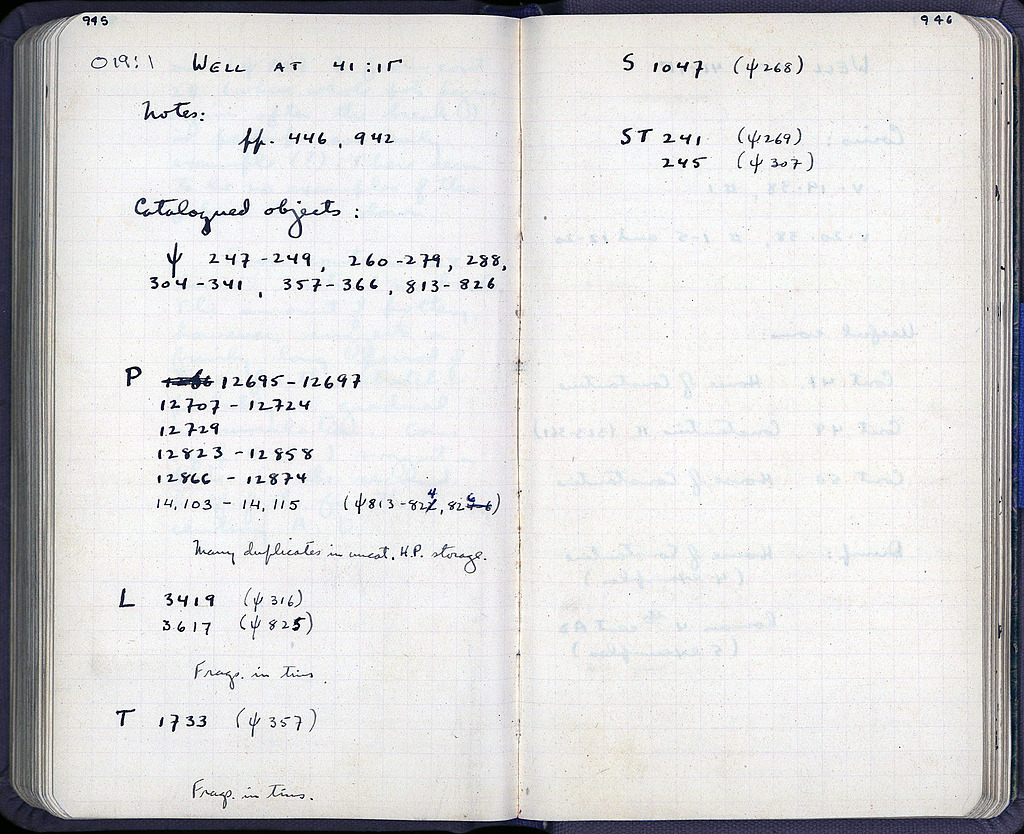 945
O19:1 WELL AT 41:ΙΓ
Notes:
pp. 446, 942
Catalogued objects:
ψ 247-249, 260-279, 288,
304-341, 357-366, 813-826
P 12695-12697
12707-12724
12729
12823-12858
12866-12874
14,103-14,115 (ψ813-824, 826)
Many duplicates in uncat. H.P. storage.
L 3419 (ψ316)
3617 (ψ825)
Frags. in tins.
T 1733 (ψ357)
Frags. in tins.
946
S 1047 (ψ268)
ST 241 (ψ269)
245 (ψ307)